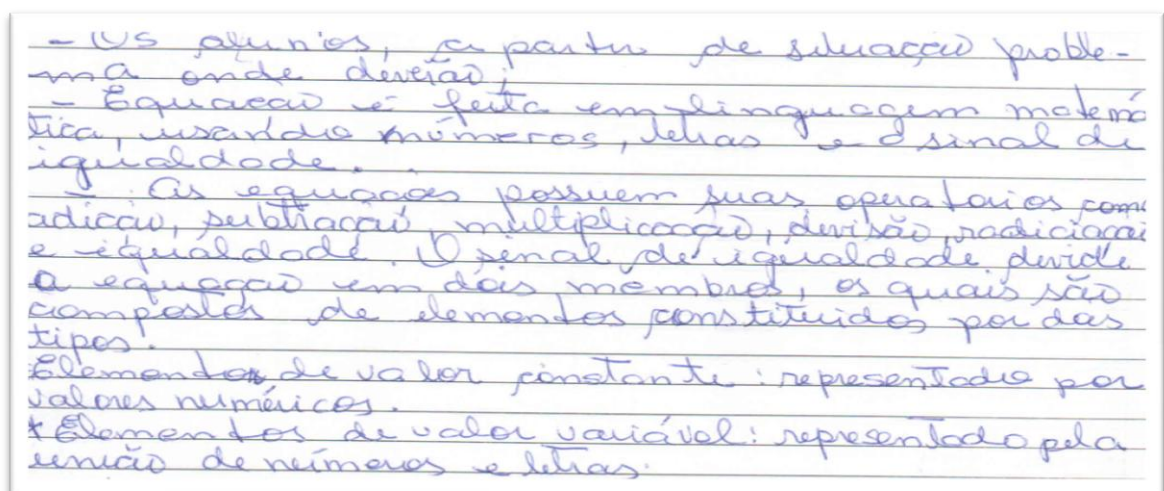 - Os alunos, a partir de situação proble-
ma onde deverão;
- Equação é feita em linguagem matemá
tica, usando números, letras e o sinal de
igualdade.
- As equações possuem suas operatorios como
adicção, subtração, multiplicação, divisão, radiciaçai
e igualdade. O sinal de igualdade divide
a equação em dois membros, os quais são
compostos de elementos constituidos por dos
tipos.
Elementos de valor constante: representado por
valores numéricos.
* Elementos de valor variável: representado pela
união de números e letras.